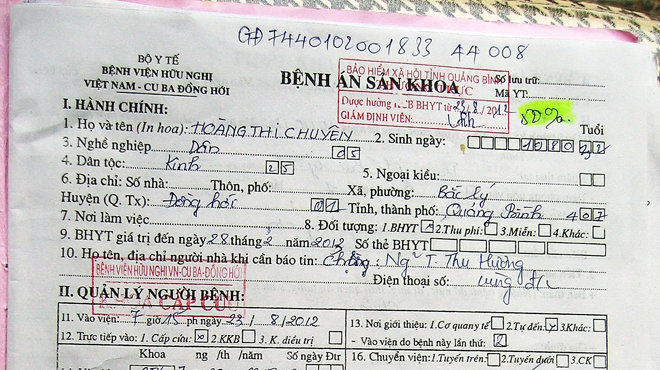 GD7440102001833 AA 008
BỘ Y TẾ
BỆNH VIỆN HỮU NGHỊ
VIỆT NAM - CU BA ĐỒNG HỚI
BỆNH ÁN SẢN KHOA
BẢO HIỂM XÃ HỘI TỈNH QUẢNG BÌNH
Được hưởng KCB BHYT từ 23/8/2012
GIÁM ĐỊNH VIÊN:
Số lưu trữ:
Mã YT:
I. HÀNH CHÍNH:
Tuổi
1. Họ và tên (In hoa): HOÀNG THỊ CHUYÊN
2. Sinh ngày:
3. Nghề nghiệp Dân
4. Dân tộc: Kinh 25
5. Ngoại kiều:
6. Địa chỉ: Số nhà: Thôn, phố: Xã, phường: Bắc lý
Huyện (Q. Tx) Đồng hới 01 Tỉnh, thành phố: Quảng Bình 407
7. Nơi làm việc 8. Đối tượng: 1.BHYT 2.Thu phí: 3.Miễn: 4.Khác:
9. BHYT giá trị đến ngày 28 tháng 2 năm 2012 Số thẻ BHYT
10. Họ tên, địa chỉ người nhà khi cần báo tin: Chồng: Ng T. Thu Hương
BỆNH VIỆN HỮU NGHỊ VN-CU BA-ĐỒNG HỚI
CẤP CỨU
Điện thoại số: cùng đ/c
II. QUẢN LÝ NGƯỜI BỆNH:
11. Vào viện: 7 giờ 15 ph ngày 23/8/2012
13. Nơi giới thiệu: 1.Cơ quan y tế 2.Tự đến: x 3.Khác:
12. Trực tiếp vào: 1. Cấp cứu x 2.KKB 3. K. điều trị
- Vào viện do bệnh này lần thứ: 2
Khoa ng /th /năm Số ngày Đtr
16. Chuyển viện: 1.Tuyến trên: 2.Tuyến dưới 3.CK